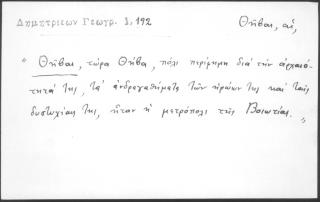 Δημητριεων Γεωγρ. 1, 192
Θῆβαι, αἱ,
" Θῆβαι, τώρα Θήβα, πόλι περίφημη διά τήν ἀρχαιό-
τητά της, τά ἀνδραγαθήματα τῶν ἡρώων της καί ταῖς
δυστυχίαις της, ἦταν ἡ μετρόπολι τῆς Βοιωτίας. "